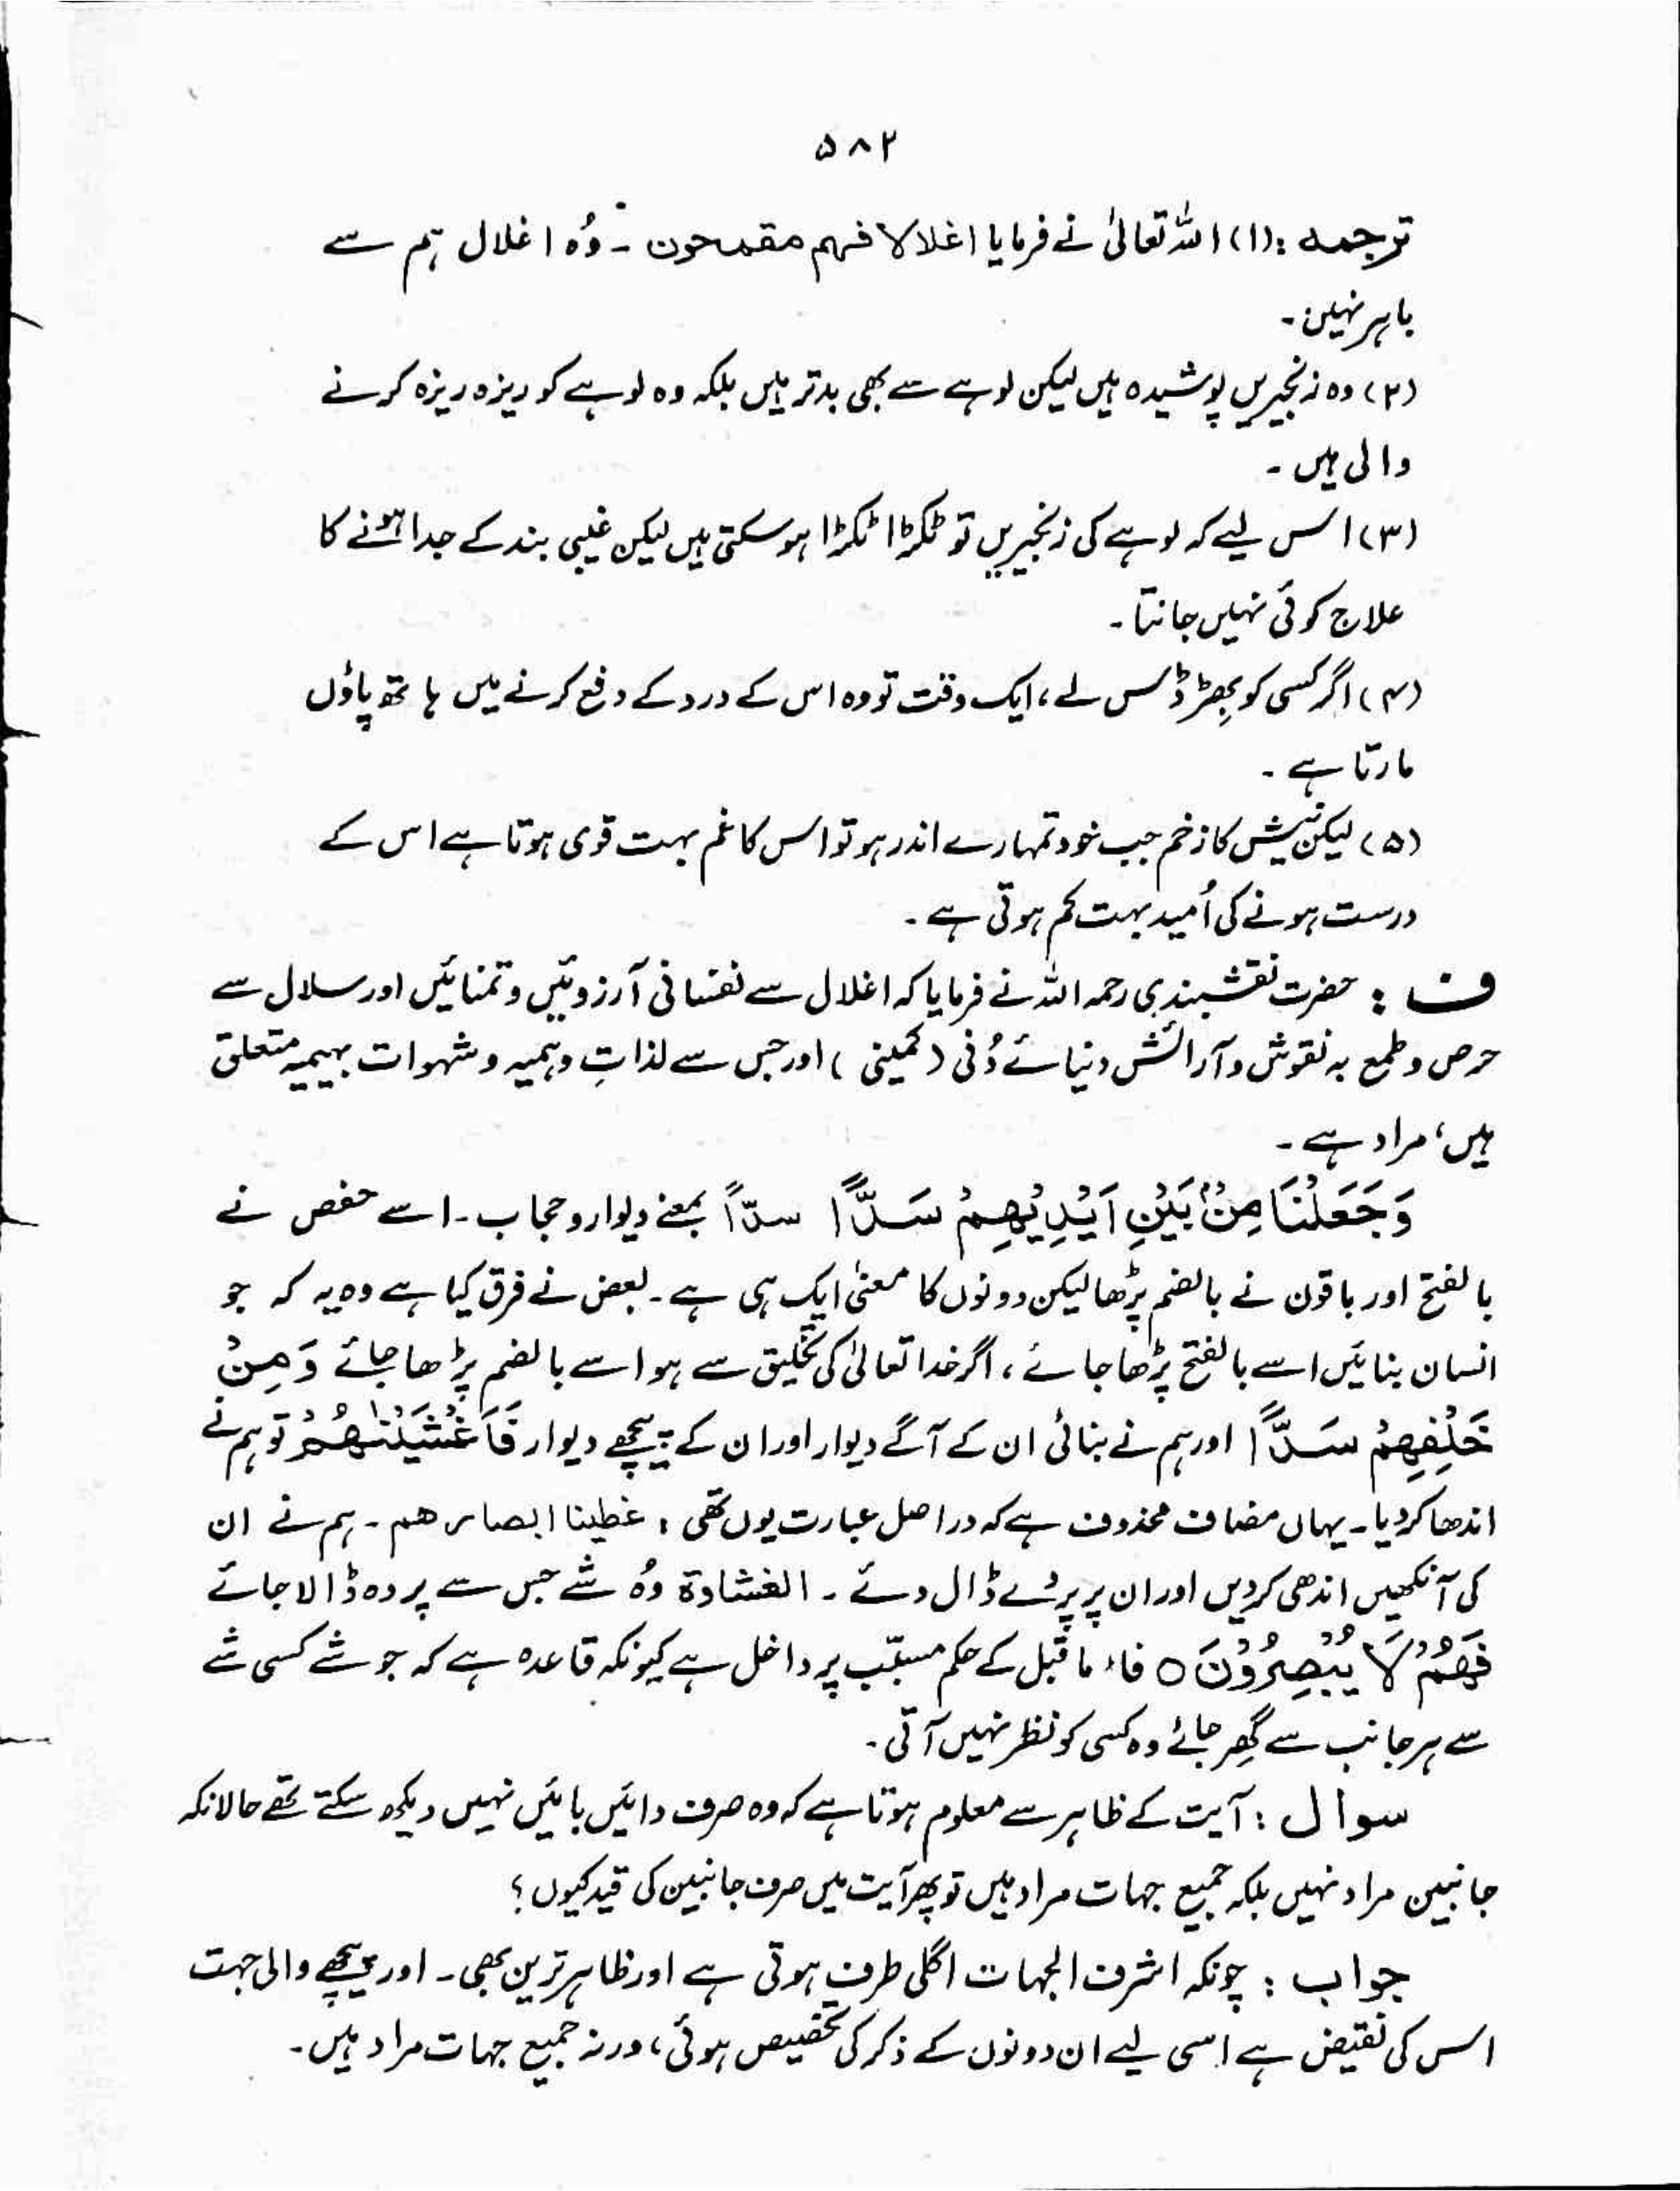 ۵۸۲
ترجمہ :(۱) اللہ تعالیٰ نے فرمایا اغلالا فہم مقمحون ۔ وُہ اغلال ہم سے
باہر نہیں ۔
(۲) وہ زنجیریں پوشیدہ ہیں لیکن لوہے سے بھی بدتر ہیں بلکہ وہ لوہے کو ریزہ ریزہ کرنے
والی ہیں ۔
(۳) اس لیے کہ لوہے کی زنجیریں تو ٹکڑا ٹکڑا ہو سکتی ہیں لیکن غیبی بند کے جدا ہونے کا
علاج کوئی نہیں جانتا ۔
(۴) اگر کسی کو بِھڑ ڈس لے ، ایک وقت تو وہ اس کے درد کے دفع کرنے میں ہاتھ پاؤں
مارتا ہے ۔
(۵) لیکن نیش کا زخم جب خود تمہارے اندر ہو تو اس کا غم بہت قوی ہوتا ہے اس کے
درست ہونے کی اُمید بہت کم ہوتی ہے ۔
ف : حضرت نقشبندی رحمہ اللہ نے فرمایا کہ اغلال سے نفسانی آرزوئیں و تمنائیں اور سلاسل سے
حرص و طمع بہ نقوش و آرائش دنیائے دُنی (کمینی) اور جس سے لذاتِ وہمیہ و شہوات بہیمیہ متعلق
ہیں ، مراد ہے ۔
وَجَعَلْنَا مِنْۢ بَیْنِ اَیْدِیْهِمْ سَدًّا سدّاً بمعنے دیوار و حجاب ۔ اسے حفص نے
بالفتح اور باقون نے بالضم پڑھا لیکن دونوں کا معنیٰ ایک ہی ہے ۔ بعض نے فرق کیا ہے وہ یہ کہ جو
انسان بنائیں اسے بالفتح پڑھا جائے ، اگر خدا تعالیٰ کی تخلیق سے ہو اسے بالضم پڑھا جائے وَمِنْ
خَلْفِهِمْ سَدًّا اور ہم نے بنائی ان کے آگے دیوار اور ان کے پیچھے دیوار فَاَغْشَیْنٰهُمْ تو ہم نے
اندھا کر دیا ۔ یہاں مضاف محذوف ہے کہ دراصل عبارت یوں تھی : غطینا ابصارھم ۔ ہم نے ان
کی آنکھیں اندھی کر دیں اور ان پر پردے ڈال دئے ۔ الغشاوۃ وُہ شے جس سے پردہ ڈالا جائے
فَهُمْ لَا یُبْصِرُوْنَ ○ فاء ماقبل کے حکم مسبّب پر داخل ہے کیونکہ قاعدہ ہے کہ جو شے کسی شے
سے ہر جانب سے گِھر جائے وہ کسی کو نظر نہیں آتی ۔
سوال : آیت کے ظاہر سے معلوم ہوتا ہے کہ وہ صرف دائیں بائیں نہیں دیکھ سکتے تھے حالانکہ
جانبین مراد نہیں بلکہ جمیع جہات مراد ہیں تو پھر آیت میں صرف جانبین کی قید کیوں ؟
جواب : چونکہ اشرف الجہات اگلی طرف ہوتی ہے اور ظاہر ترین بھی ۔ اور پیچھے والی جہت
اس کی نقیض ہے اسی لیے ان دونوں کے ذکر کی تخصیص ہوئی ، ورنہ جمیع جہات مراد ہیں ۔